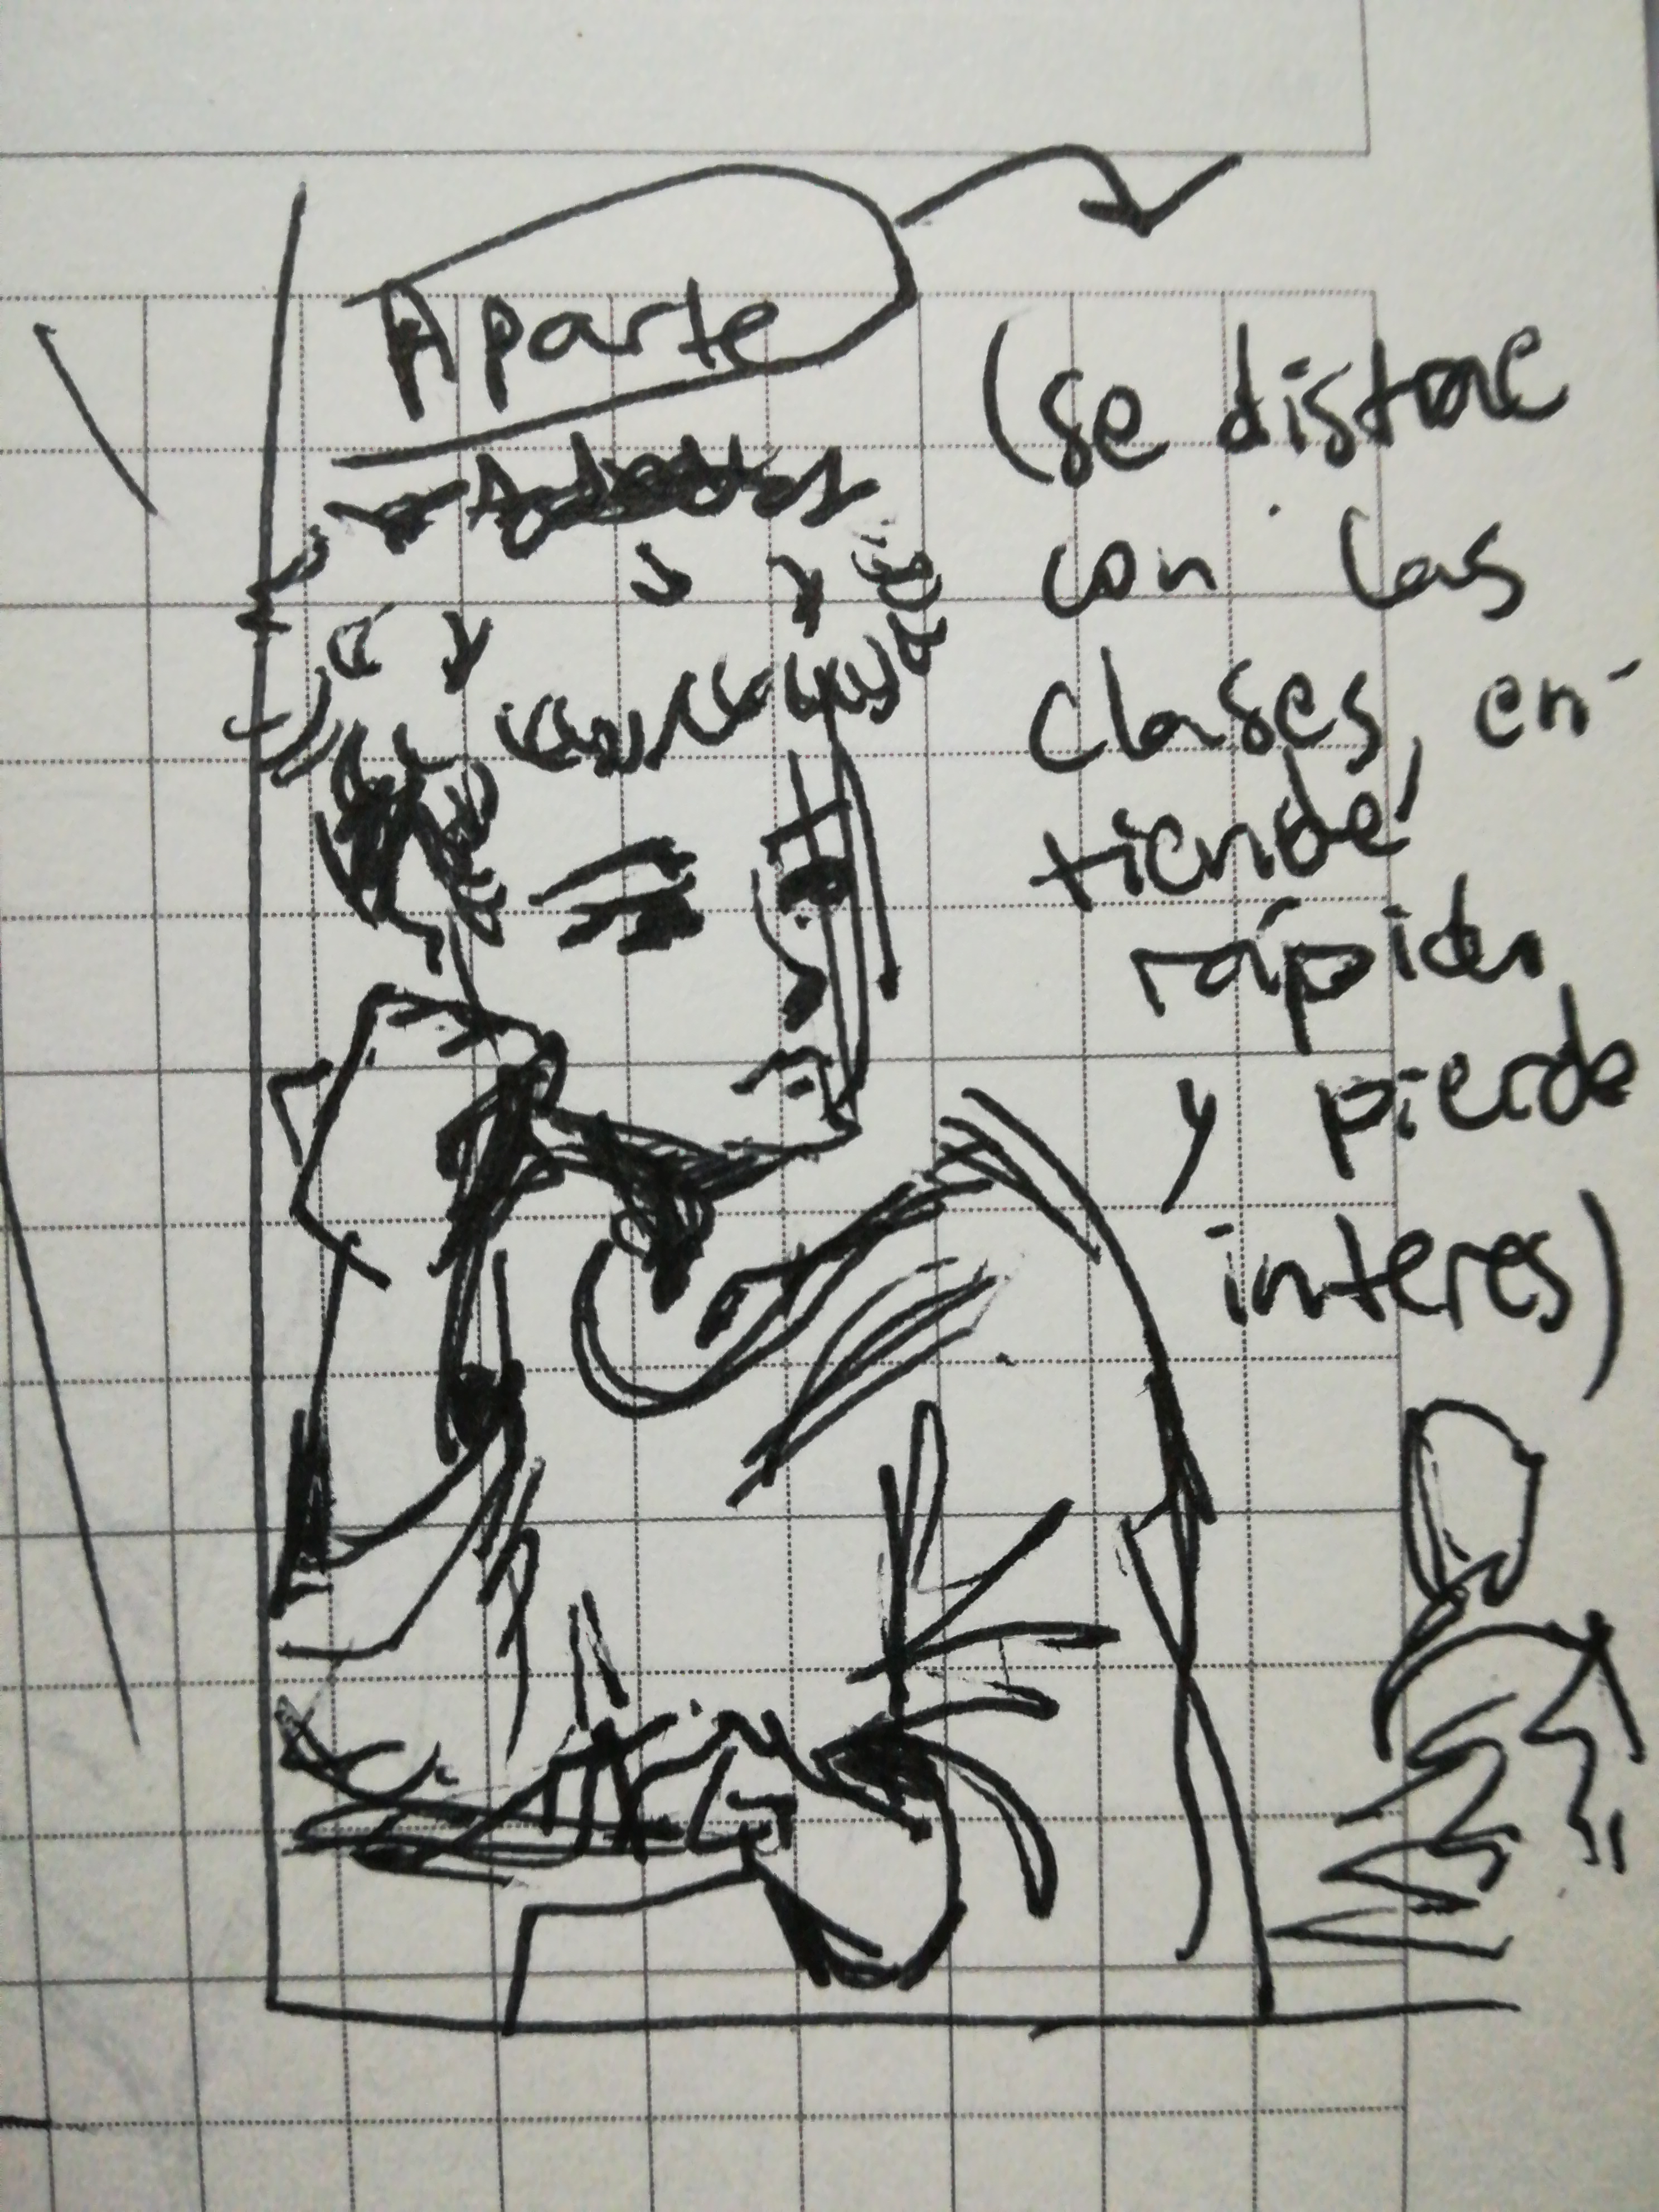 Aparte
(se distrae
con las
clases, en-
tiende
rápido
y pierde
interes)